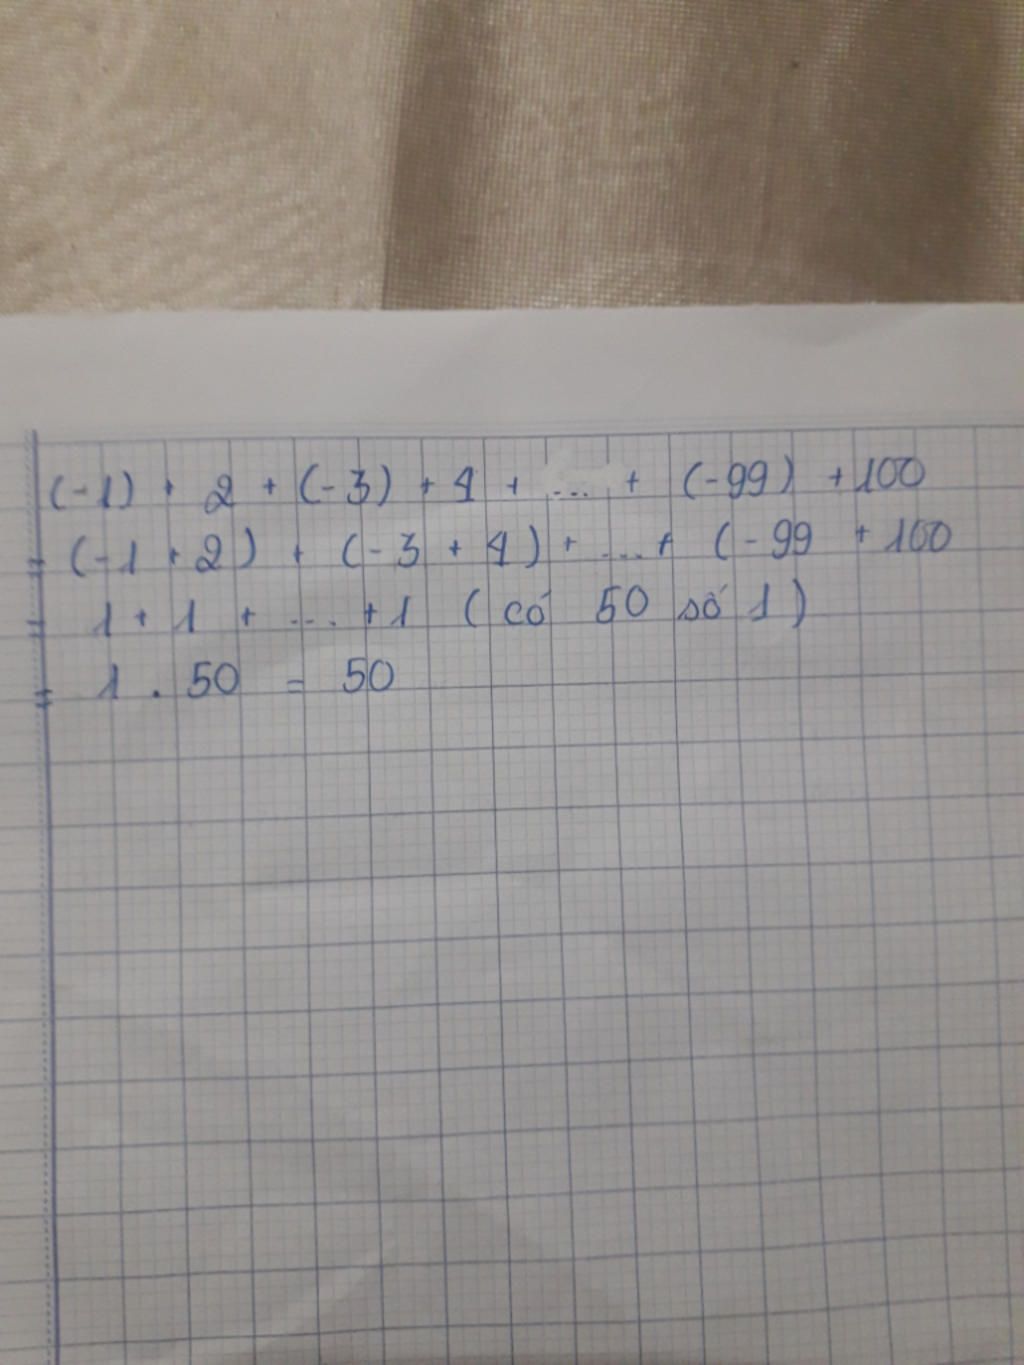 (-1) + 2 + (-3) + 4 + ... + (-99) + 100
= (-1 + 2) + (-3 + 4) + ... + (-99 + 100
= 1 + 1 + ... + 1 ( có 50 số 1 )
= 1 . 50 = 50